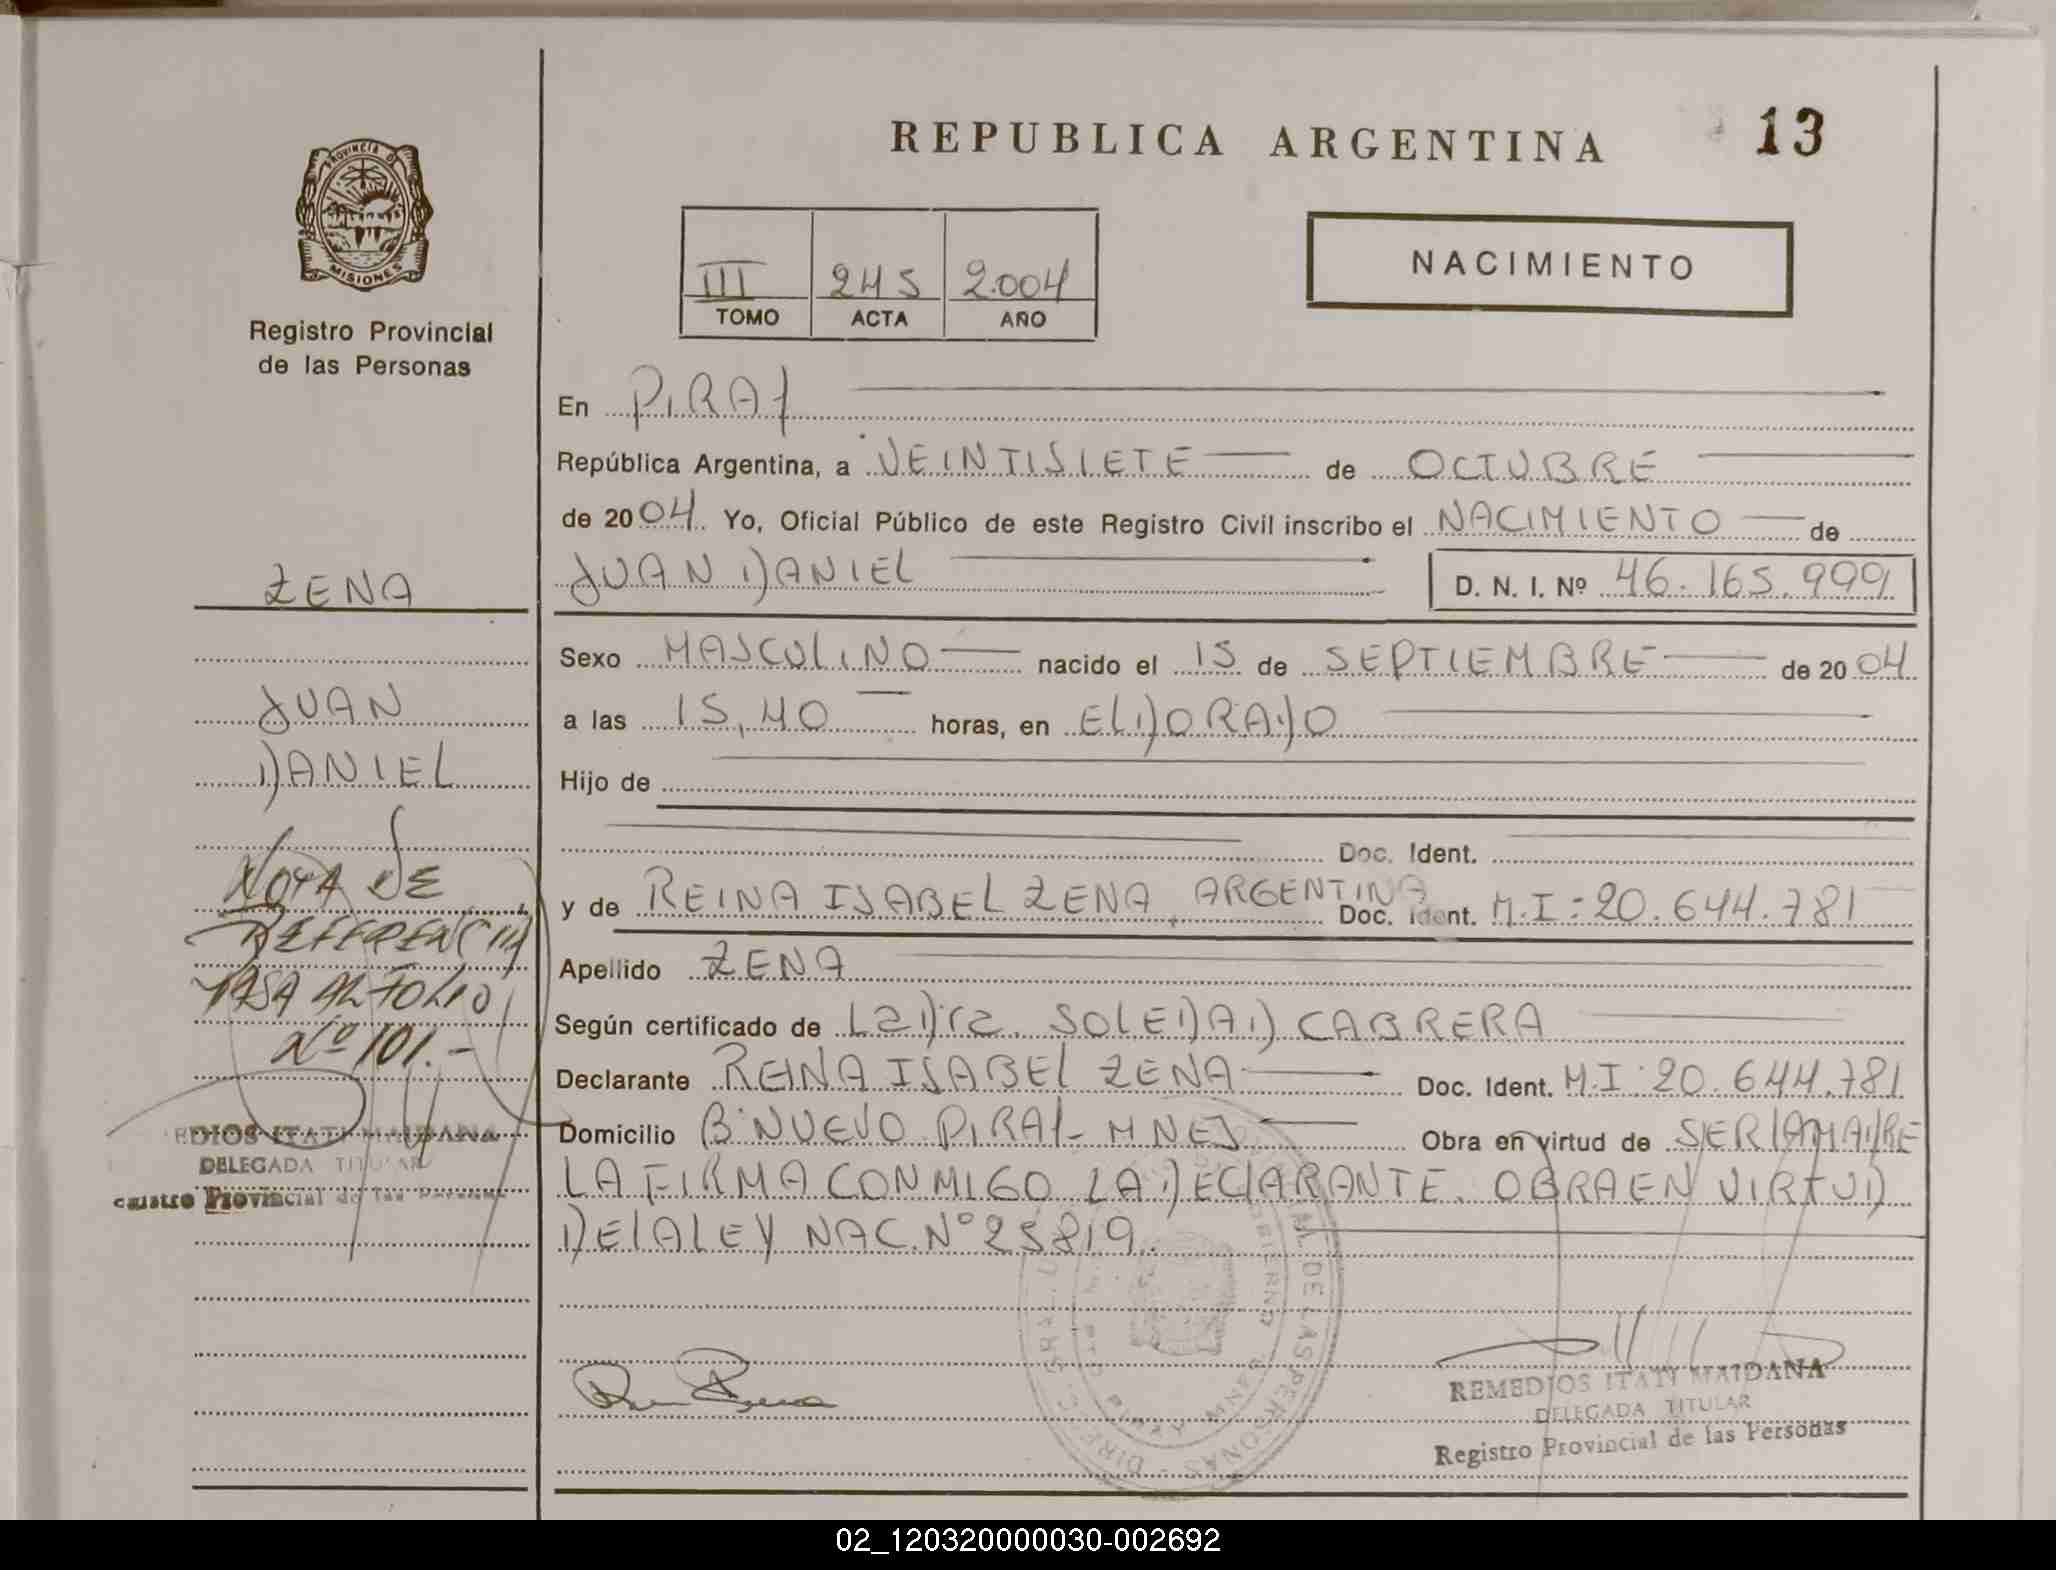 REPUBLICA ARGENTINA
13
PROVINCIA DE
MISIONES
Registro Provincial
de las Personas
III 245 2.004
TOMO ACTA AÑO
NACIMIENTO
En PIRAY
República Argentina, a VEINTISIETE de OCTUBRE
de 2004. Yo, Oficial Público de este Registro Civil inscribo el NACIMIENTO de
JUAN DANIEL D. N. I. Nº 46.165.999
Sexo MASCULINO nacido el 15 de SEPTIEMBRE de 2004
a las 15,40 horas, en ELDORADO
Hijo de
Doc. Ident.
y de REINA ISABEL ZENA, ARGENTINA Doc. Ident. M.I: 20.644.781
Apellido ZENA
Según certificado de SOLEDAD CABRERA
Declarante REINA ISABEL ZENA Doc. Ident. M.I: 20.644.781
Domicilio Bº NUEVO PIRAY - MNES Obra en virtud de SER LA MADRE
LA FIRMA CONMIGO LA DECLARANTE. OBRA EN VIRTUD
DE LA LEY NAC. Nº 25819.
REMEDIOS ITATI MAIDANA
DELEGADA TITULAR
Registro Provincial de las Personas
ZENA
JUAN
DANIEL
NOTA DE
REFERENCIA
PASA AL FOLIO
Nº 101.-
EDIOS ITATI MAIDANA
DELEGADA TITULAR
Provincial de las Personas
02_120320000030-002692